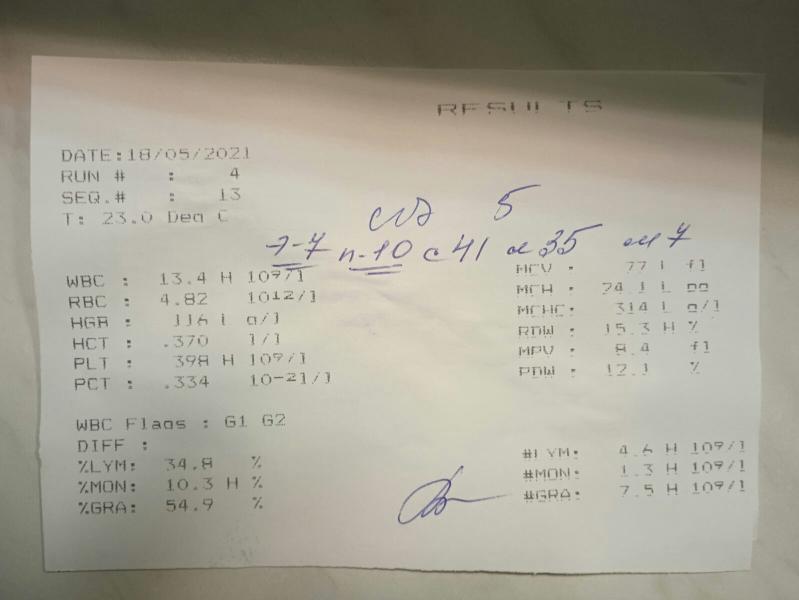 RESULTS
DATE:18/05/2021
RUN # : 4
SEQ.# : 13
T: 23.0 Deg C
соэ 5
э-7 п-10 с 41 л 35 м 7
WBC : 13.4 H 109/l
RBC : 4.82 1012/l
HGB : 116 L g/l
HCT : .370 l/l
PLT : 398 H 109/l
PCT : .334 10-2l/l
MCV : 77 L fl
MCH : 24.1 L pg
MCHC: 314 L g/l
RDW : 15.3 H %
MPV : 8.4 fl
PDW : 12.1 %
WBC Flags : G1 G2
DIFF :
%LYM: 34.8 %
%MON: 10.3 H %
%GRA: 54.9 %
#LYM: 4.6 H 109/l
#MON: 1.3 H 109/l
#GRA: 7.5 H 109/l